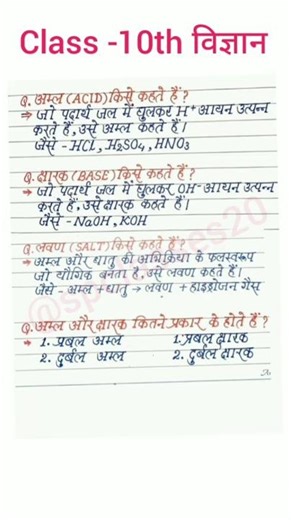 Class -10th विज्ञान
Q. अम्ल (ACID) किसे कहते हैं ?
⇒ जो पदार्थ जल में घुलकर H⁺ आयन उत्पन्न
करते हैं, उसे अम्ल कहते हैं।
जैसे - HCL, H₂SO₄, HNO₃
Q. क्षारक (BASE) किसे कहते हैं ?
⇒ जो पदार्थ जल में घुलकर OH⁻ आयन उत्पन्न
करते हैं, उसे क्षारक कहते हैं।
जैसे - NaOH, KOH
Q. लवण (SALT) किसे कहते हैं ?
⇒ अम्ल और धातु की अभिक्रिया के फलस्वरूप
जो यौगिक बनता है, उसे लवण कहते हैं।
जैसे - अम्ल + धातु → लवण + हाइड्रोजन गैस
Q. अम्ल और क्षारक कितने प्रकार के होते हैं ?
⇒ 1. प्रबल अम्ल 1. प्रबल क्षारक
2. दुर्बल अम्ल 2. दुर्बल क्षारक